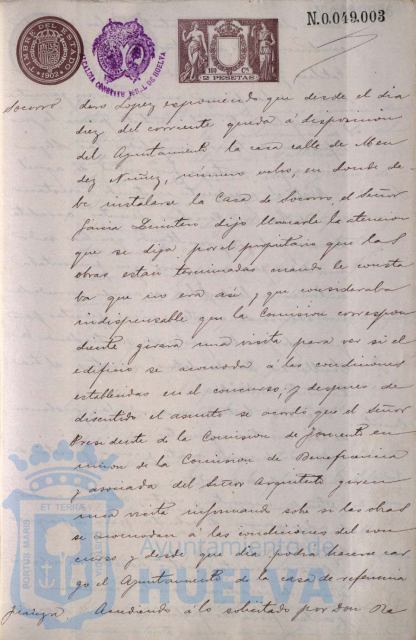 N.0.049.003
TIMBRE DEL ESTADO
1903
ALCALDIA CONSTITUCIONAL DE HUELVA
2 PESETAS
Socorro
Lopez esponiendo que desde el dia
diez del corriente queda á disposicion
del Ayuntamiento la casa calle de Men
dez Nuñez, número ocho, en donde de
be instalarse la Casa de Socorro, el Señor
Garcia dijo llamarle la atencion
que se diga por el propietario que las
obras estan terminadas cuando le consta
ba que no era asi, que consideraba
indispensable que la Comision correspon
diente girara una visita para ver si el
edificio se acomoda á las condiciones
establecidas en el concurso; y despues de
discutido el asunto se acordó que el Señor
Presidente de la Comision de Fomento en
union de la Comision de Beneficencia
y asociada del Señor Arquitecto giren
una visita informando sobre si las obras
se acomodan á las condiciones del con
curso y desde que dia podra hacerse car
go el Ayuntamiento de la casa de referencia
Accediendo á lo solicitado por Don
PORTUS MARIS
ET TERRAE
Ayuntamiento de
HUELVA